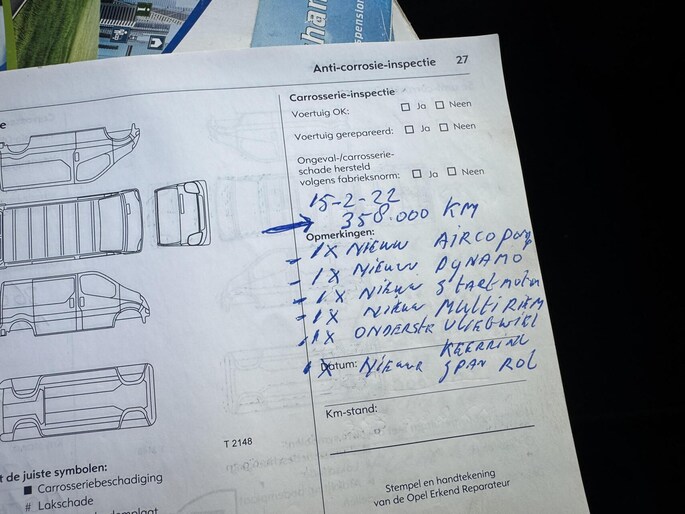 Anti-corrosie-inspectie 27
Carrosserie-inspectie
Voertuig OK: Ja Neen
Voertuig gerepareerd: Ja Neen
Ongeval-/carrosserie-
schade hersteld
volgens fabrieksnorm: Ja Neen
15-2-22
358.000 KM
Opmerkingen:
1X NIEUW AIRCO pomp
1X NIEUW DYNAMO
1X NIEUW Startmotor
1X NIEUW MULTI RIEM
1X ONDERSTE VLIEGWIEL
KEERRING
Datum:
1X NIEUW SPAN ROL
Km-stand:
T 2148
Stempel en handtekening
van de Opel Erkend Reparateur
t de juiste symbolen:
■ Carrosseriebeschadiging
# Lakschade